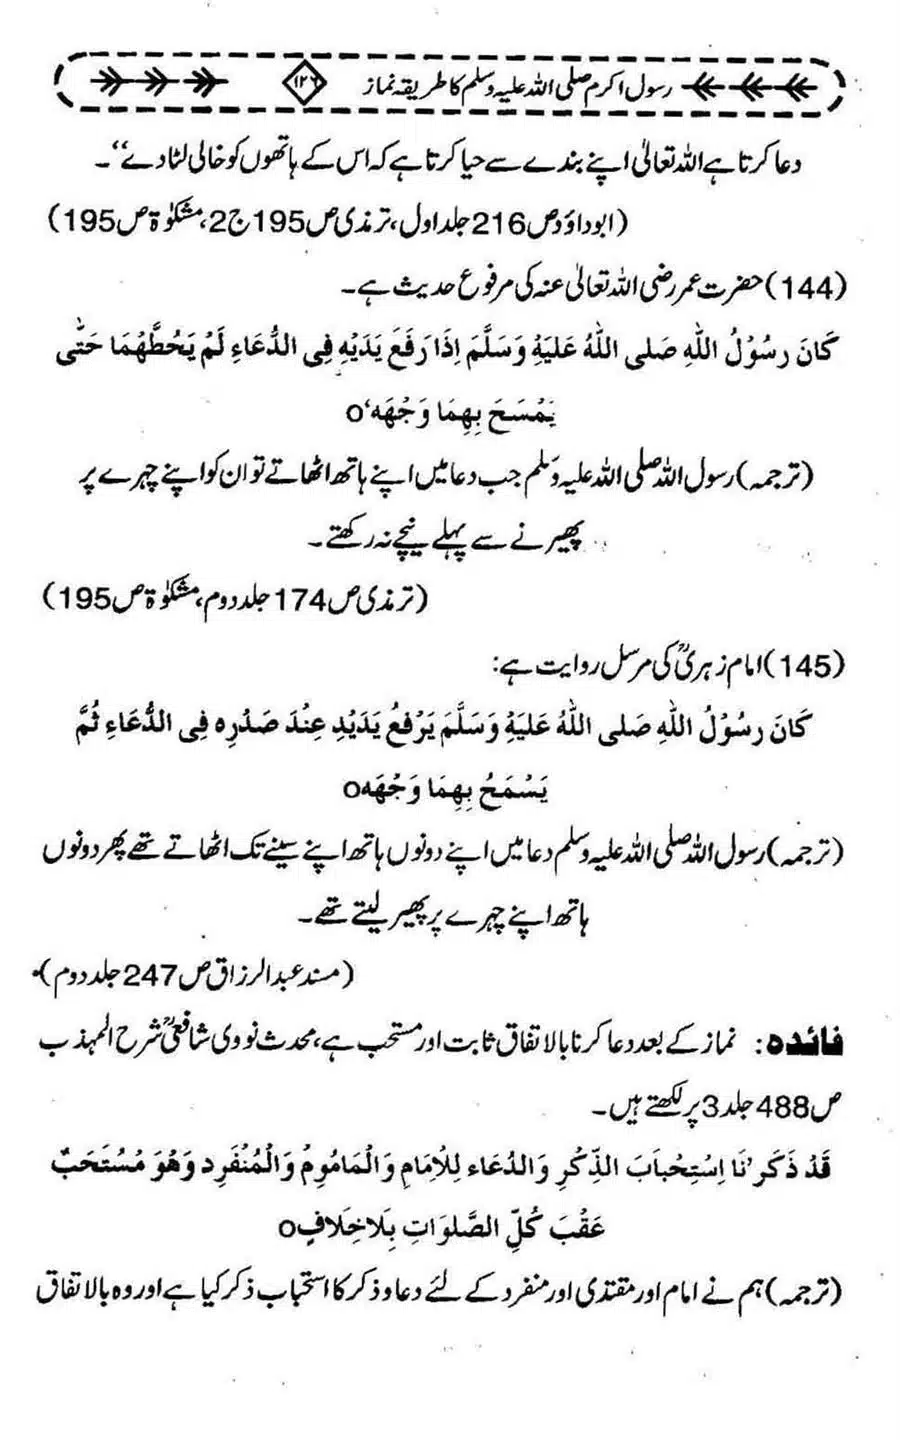 رسول اکرم صلی اللہ علیہ وسلم کا طریقہ نماز ۱۲۶
دعا کرتا ہے اللہ تعالیٰ اپنے بندے سے حیا کرتا ہے کہ اس کے ہاتھوں کو خالی لٹا دے‘‘۔
(ابوداؤد ص 216 جلد اول، ترمذی ص 195 ج 2، مشکوٰۃ ص 195)
(144) حضرت عمر رضی اللہ تعالیٰ عنہ کی مرفوع حدیث ہے۔
كَانَ رَسُوْلُ اللّٰهِ صَلى اللّٰهُ عَلَيْهِ وَسَلَّمَ اِذَا رَفَعَ يَدَيْهِ فِى الدُّعَاءِ لَمْ يَحُطَّهُمَا حَتّٰى
يَمْسَحَ بِهِمَا وَجْهَه‘o
(ترجمہ) رسول اللہ صلی اللہ علیہ وسلم جب دعا میں اپنے ہاتھ اٹھاتے تو ان کو اپنے چہرے پر
پھیرنے سے پہلے نیچے نہ رکھتے۔
(ترمذی ص 174 جلد دوم، مشکوٰۃ ص 195)
(145) امام زہریؒ کی مرسل روایت ہے:
كَانَ رَسُوْلُ اللّٰهِ صَلى اللّٰهُ عَلَيْهِ وَسَلَّمَ يَرْفَعُ يَدَيْدِ عِنْدَ صَدْرِه فِى الدُّعَاءِ ثُمَّ
يَسْمَحُ بِهِمَا وَجْهَهo
(ترجمہ) رسول اللہ صلی اللہ علیہ وسلم دعا میں اپنے دونوں ہاتھ اپنے سینے تک اٹھاتے تھے پھر دونوں
ہاتھ اپنے چہرے پر پھیر لیتے تھے۔
(مسند عبدالرزاق ص 247 جلد دوم)
فائدہ: نماز کے بعد دعا کرنا بالاتفاق ثابت اور مستحب ہے، محدث نووی شافعیؒ شرح المہذب
ص 488 جلد 3 پر لکھتے ہیں۔
قَدْ ذَكَر’نَا اِسْتِحْبَابَ الذِّكْرِ وَالدُعَاء لِلْاِمَامِ وَالْمَامُوِمُ وَالْمُنْفَرِد وَهُوَ مُسْتَحَبٌ
عَقْبَ كُلِّ الصَّلوَاتِ بِلَاخِلَافٍo
(ترجمہ) ہم نے امام اور مقتدی اور منفرد کے لئے دعا و ذکر کا استحباب ذکر کیا ہے اور وہ بالاتفاق